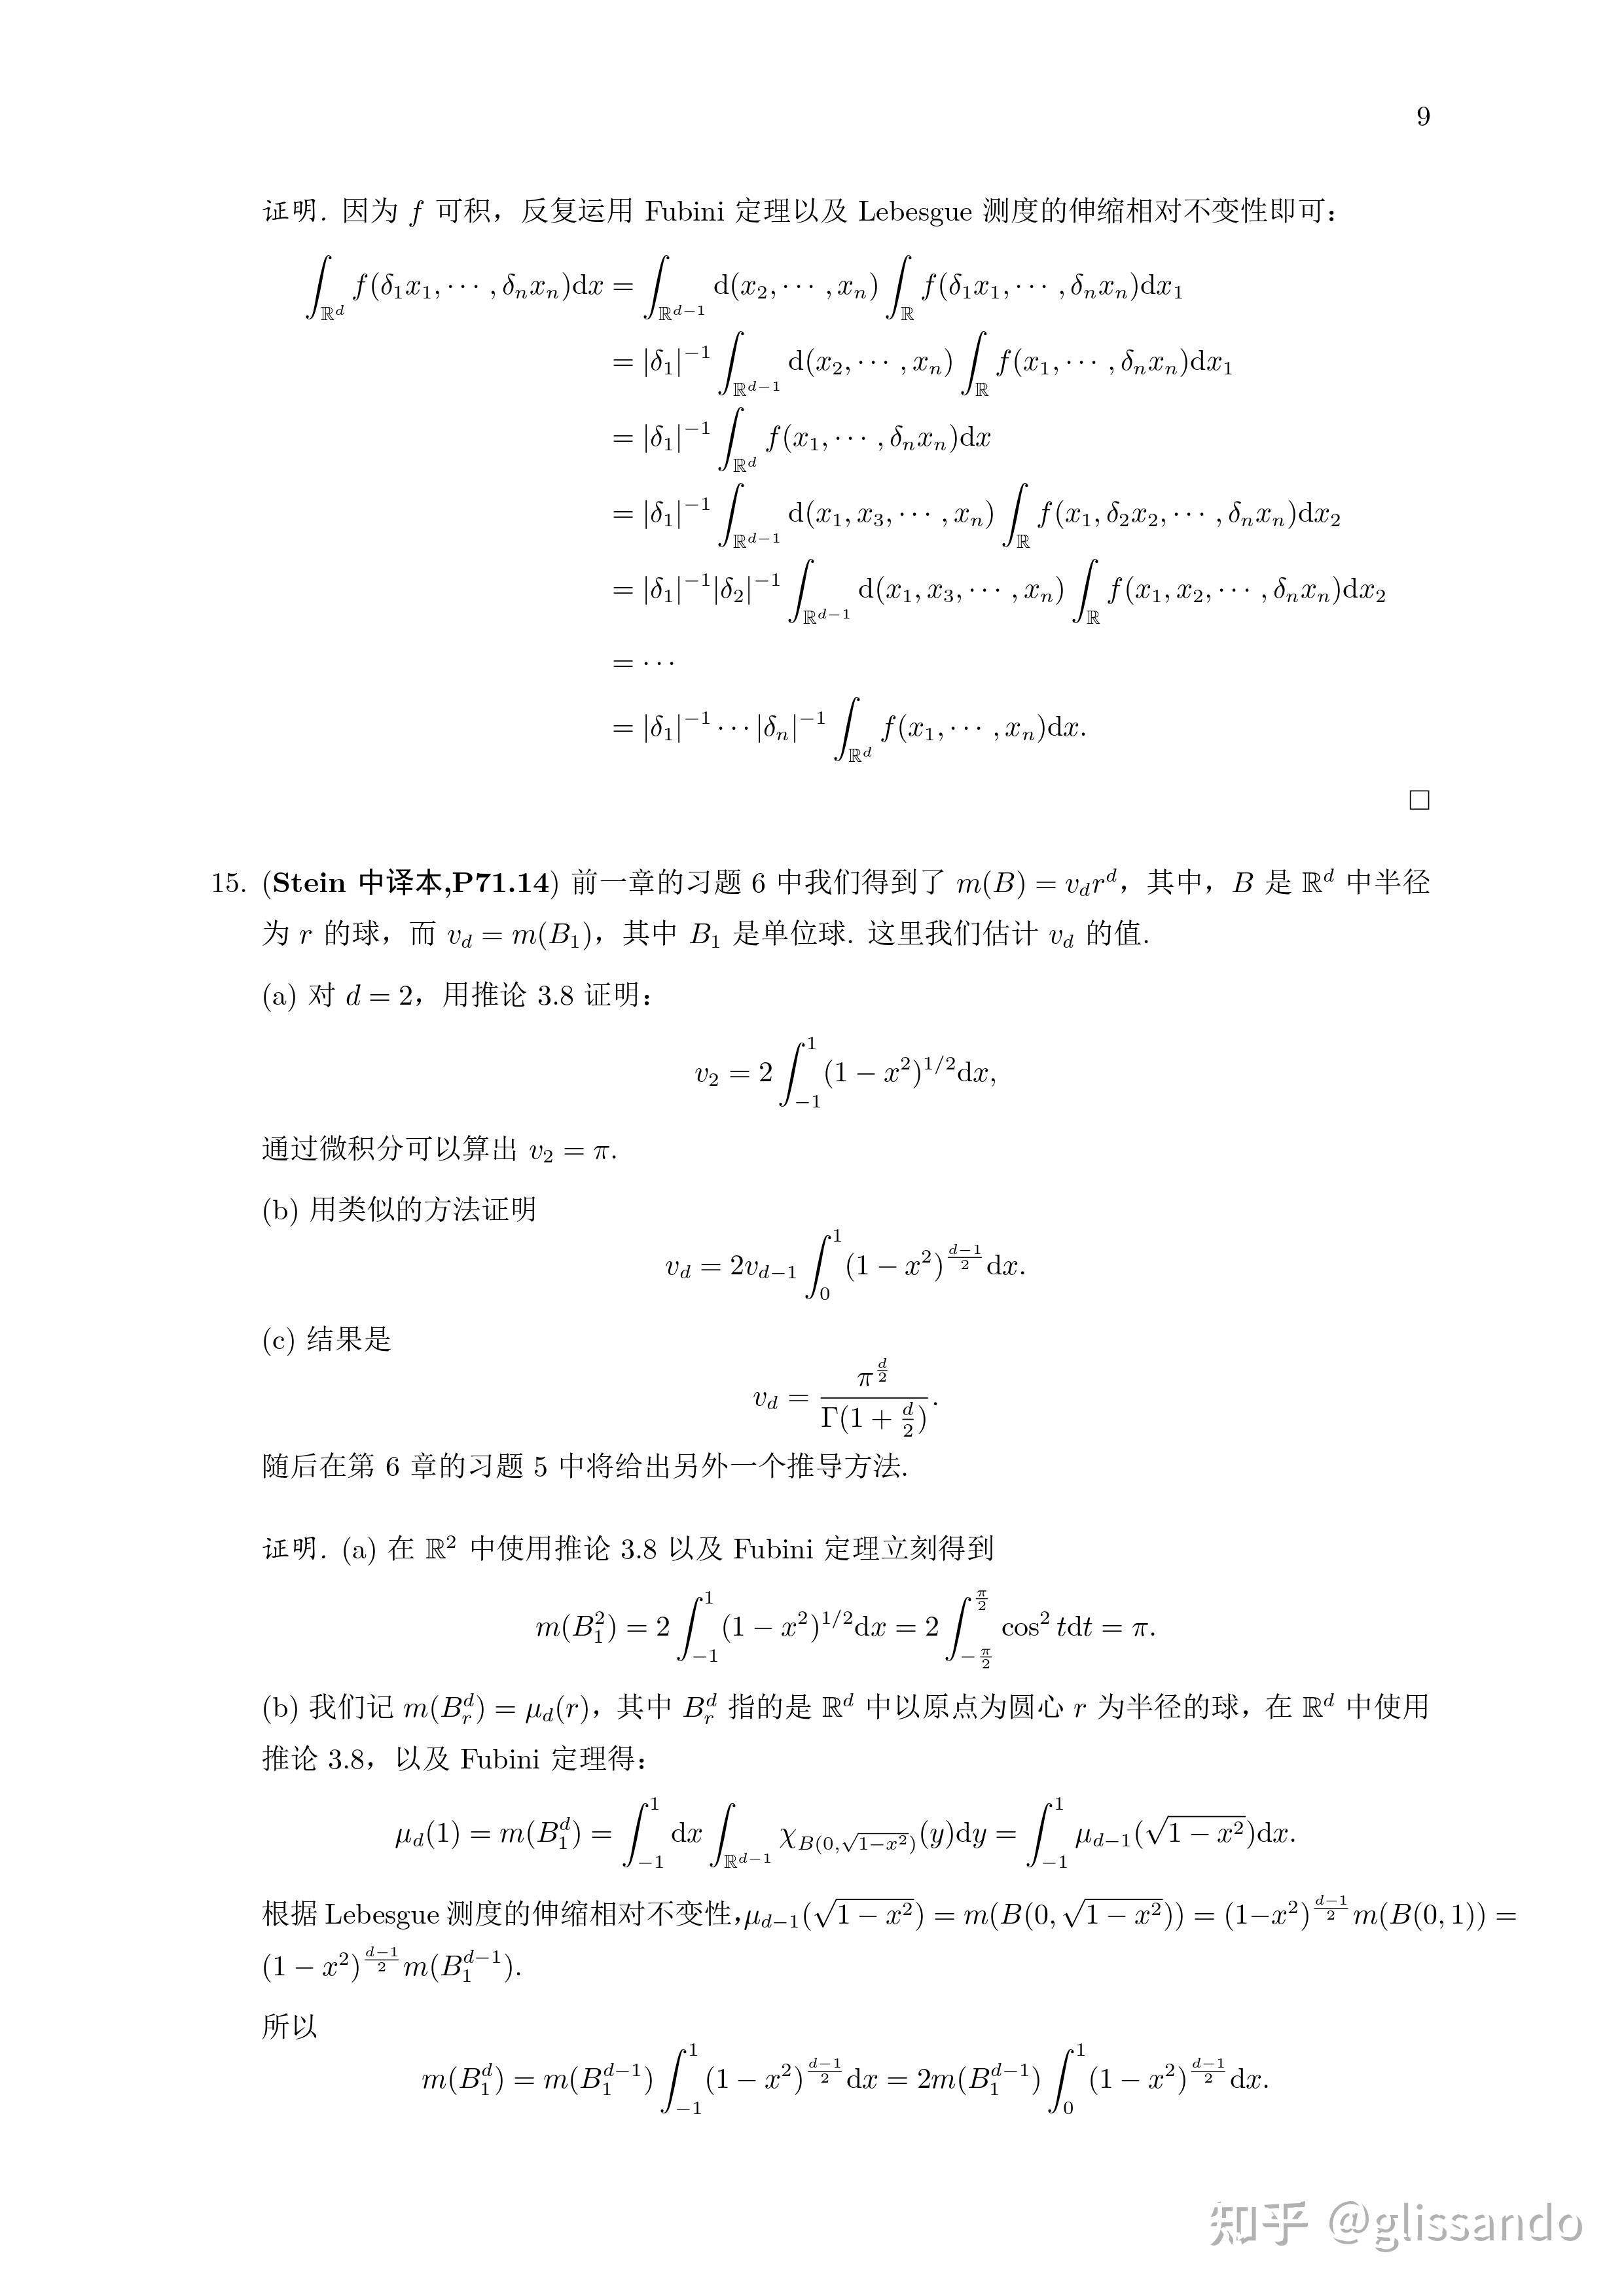 9
证明. 因为 f 可积，反复运用 Fubini 定理以及 Lebesgue 测度的伸缩相对不变性即可：
$\int_{\mathbb{R}^d} f(\delta_1 x_1, \cdots, \delta_n x_n)\mathrm{d}x = \int_{\mathbb{R}^{d-1}} \mathrm{d}(x_2, \cdots, x_n) \int_{\mathbb{R}} f(\delta_1 x_1, \cdots, \delta_n x_n)\mathrm{d}x_1$
$= |\delta_1|^{-1} \int_{\mathbb{R}^{d-1}} \mathrm{d}(x_2, \cdots, x_n) \int_{\mathbb{R}} f(x_1, \cdots, \delta_n x_n)\mathrm{d}x_1$
$= |\delta_1|^{-1} \int_{\mathbb{R}^d} f(x_1, \cdots, \delta_n x_n)\mathrm{d}x$
$= |\delta_1|^{-1} \int_{\mathbb{R}^{d-1}} \mathrm{d}(x_1, x_3, \cdots, x_n) \int_{\mathbb{R}} f(x_1, \delta_2 x_2, \cdots, \delta_n x_n)\mathrm{d}x_2$
$= |\delta_1|^{-1}|\delta_2|^{-1} \int_{\mathbb{R}^{d-1}} \mathrm{d}(x_1, x_3, \cdots, x_n) \int_{\mathbb{R}} f(x_1, x_2, \cdots, \delta_n x_n)\mathrm{d}x_2$
$= \cdots$
$= |\delta_1|^{-1} \cdots |\delta_n|^{-1} \int_{\mathbb{R}^d} f(x_1, \cdots, x_n)\mathrm{d}x.$
□
15. (Stein 中译本,P71.14) 前一章的习题 6 中我们得到了 $m(B) = v_d r^d$，其中，B 是 $\mathbb{R}^d$ 中半径
为 r 的球，而 $v_d = m(B_1)$，其中 $B_1$ 是单位球. 这里我们估计 $v_d$ 的值.
(a) 对 $d = 2$，用推论 3.8 证明：
$v_2 = 2 \int_{-1}^{1} (1 - x^2)^{1/2}\mathrm{d}x,$
通过微积分可以算出 $v_2 = \pi$.
(b) 用类似的方法证明
$v_d = 2v_{d-1} \int_{0}^{1} (1 - x^2)^{\frac{d-1}{2}} \mathrm{d}x.$
(c) 结果是
$v_d = \frac{\pi^{\frac{d}{2}}}{\Gamma(1 + \frac{d}{2})}.$
随后在第 6 章的习题 5 中将给出另外一个推导方法.
证明. (a) 在 $\mathbb{R}^2$ 中使用推论 3.8 以及 Fubini 定理立刻得到
$m(B_1^2) = 2 \int_{-1}^{1} (1 - x^2)^{1/2}\mathrm{d}x = 2 \int_{-\frac{\pi}{2}}^{\frac{\pi}{2}} \cos^2 t\mathrm{d}t = \pi.$
(b) 我们记 $m(B_r^d) = \mu_d(r)$，其中 $B_r^d$ 指的是 $\mathbb{R}^d$ 中以原点为圆心 r 为半径的球，在 $\mathbb{R}^d$ 中使用
推论 3.8，以及 Fubini 定理得：
$\mu_d(1) = m(B_1^d) = \int_{-1}^{1} \mathrm{d}x \int_{\mathbb{R}^{d-1}} \chi_{B(0,\sqrt{1-x^2})}(y)\mathrm{d}y = \int_{-1}^{1} \mu_{d-1}(\sqrt{1 - x^2})\mathrm{d}x.$
根据 Lebesgue 测度的伸缩相对不变性，$\mu_{d-1}(\sqrt{1 - x^2}) = m(B(0, \sqrt{1 - x^2})) = (1-x^2)^{\frac{d-1}{2}} m(B(0, 1)) =$
$(1 - x^2)^{\frac{d-1}{2}} m(B_1^{d-1})$.
所以
$m(B_1^d) = m(B_1^{d-1}) \int_{-1}^{1} (1 - x^2)^{\frac{d-1}{2}} \mathrm{d}x = 2m(B_1^{d-1}) \int_{0}^{1} (1 - x^2)^{\frac{d-1}{2}} \mathrm{d}x.$
知乎 @glissando